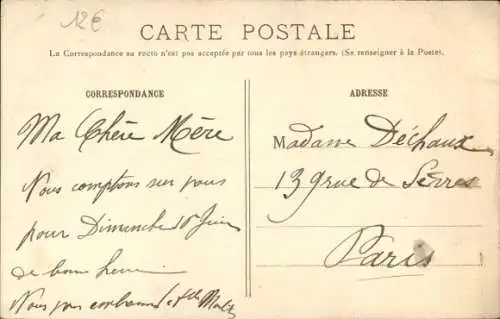 12€
CARTE POSTALE
La Correspondance au recto n'est pas acceptée par tous les pays étrangers. (Se renseigner à la Poste).
CORRESPONDANCE
Ma Chère Mère
Nous comptons sur vous
pour Dimanche 10 Juin
de bonne heure
Nous
ADRESSE
Madame Déchaux
139 rue de Sèvres
Paris